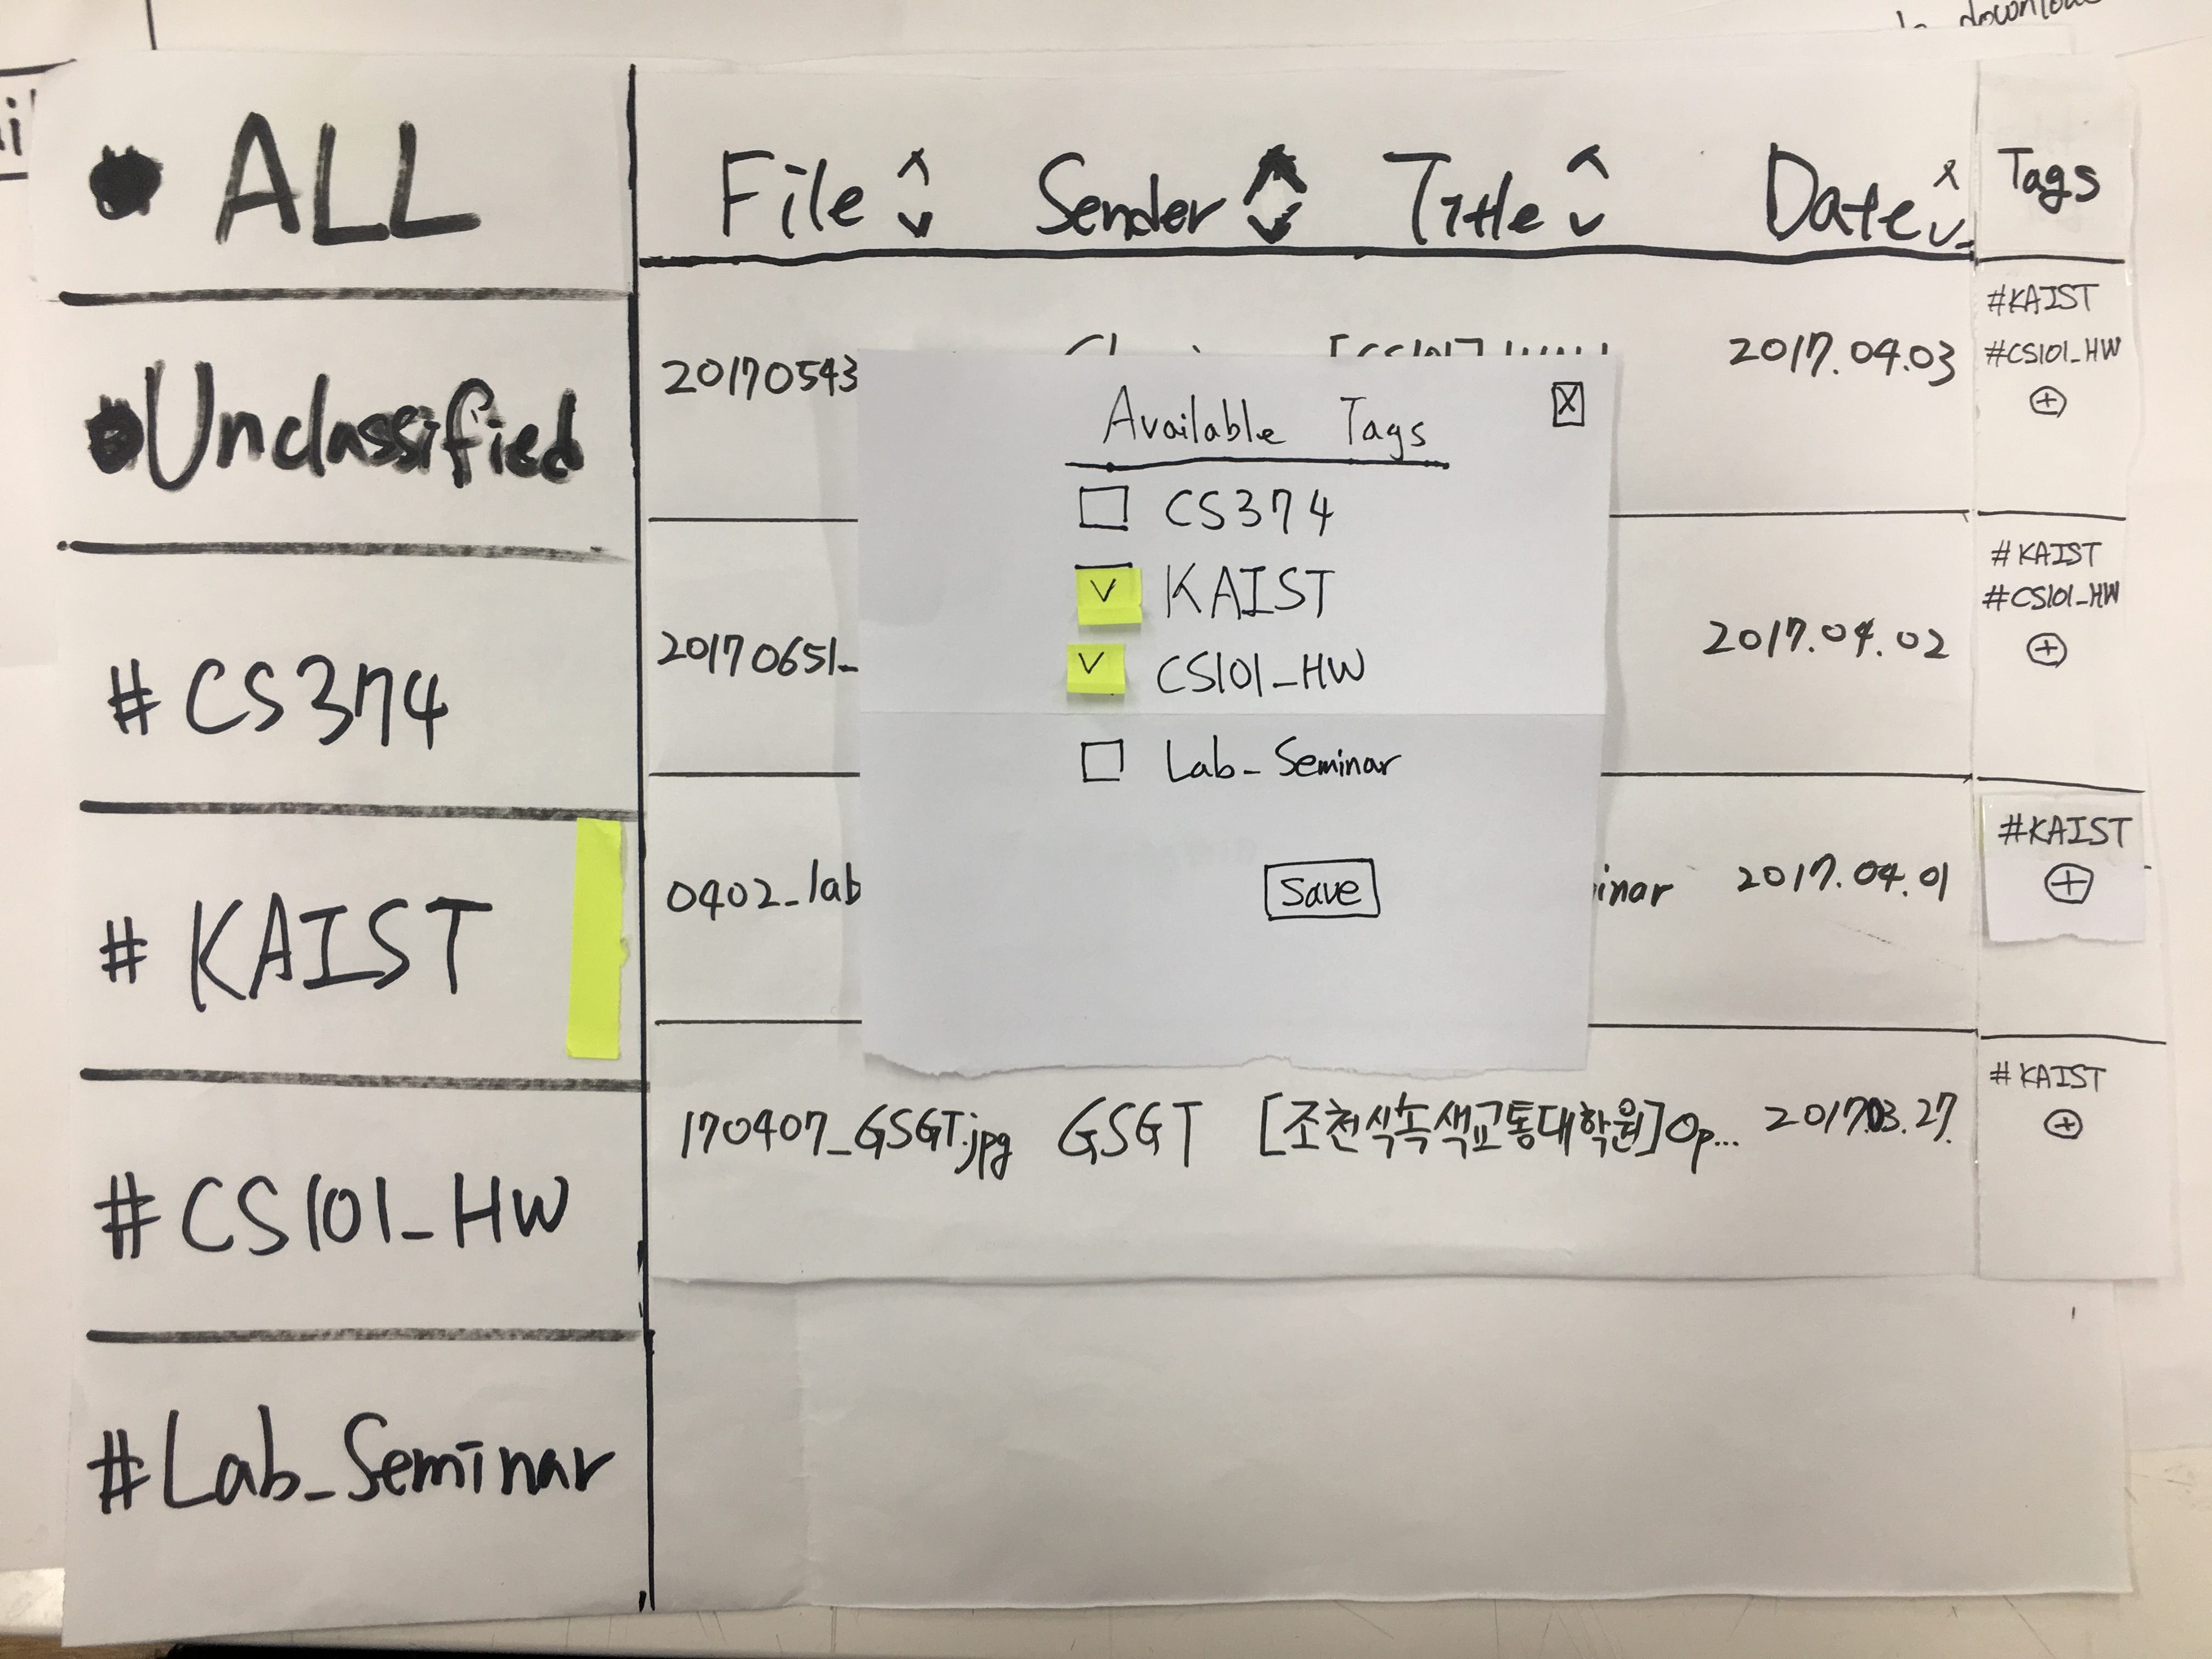 ALL
Unclassified
#CS374
#KAIST
#CS101_HW
#Lab_Seminar
File Sender Title Date Tags
20170543 2017.04.03
#KAIST
#CS101_HW
20170651_ 2017.04.02
#KAIST
#CS101_HW
0402_lab inar 2017.04.01
#KAIST
170407_GSGT.jpg GSGT [조천식녹색교통대학원]Op... 2017.03.27.
#KAIST
Available Tags
X
CS374
KAIST
CS101_HW
Lab_Seminar
Save